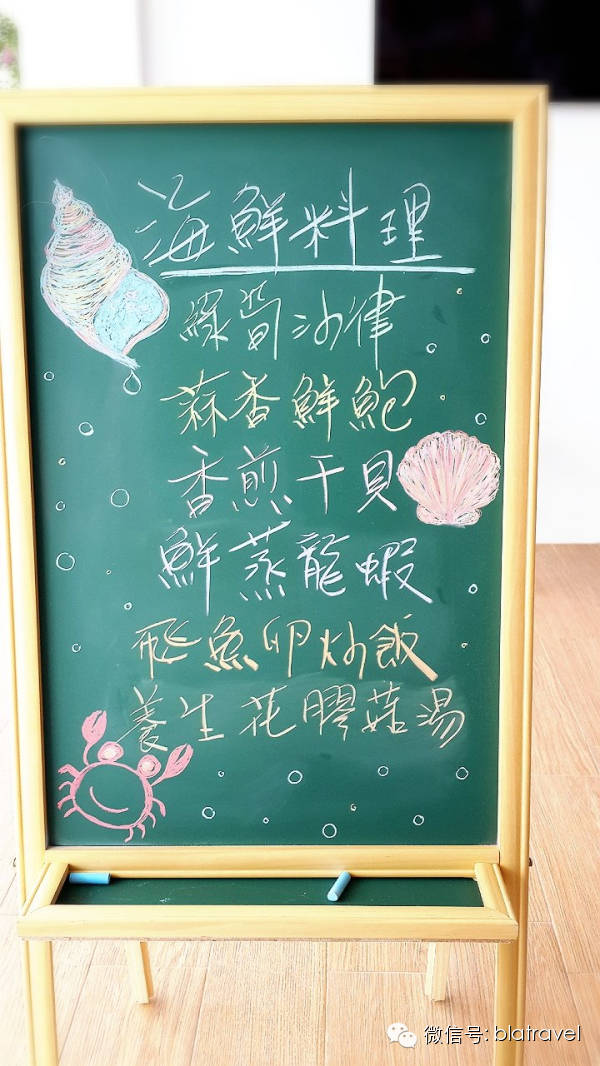 海鮮料理
綠筍沙律
蒜香鮮鮑
香煎干貝
鮮蒸龍蝦
飛魚卵炒飯
養生花膠菇湯
微信号: blatravel